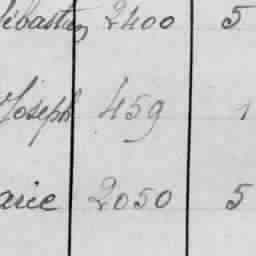 Sébastien 2400 5
Joseph 459 1
arie 2050 5